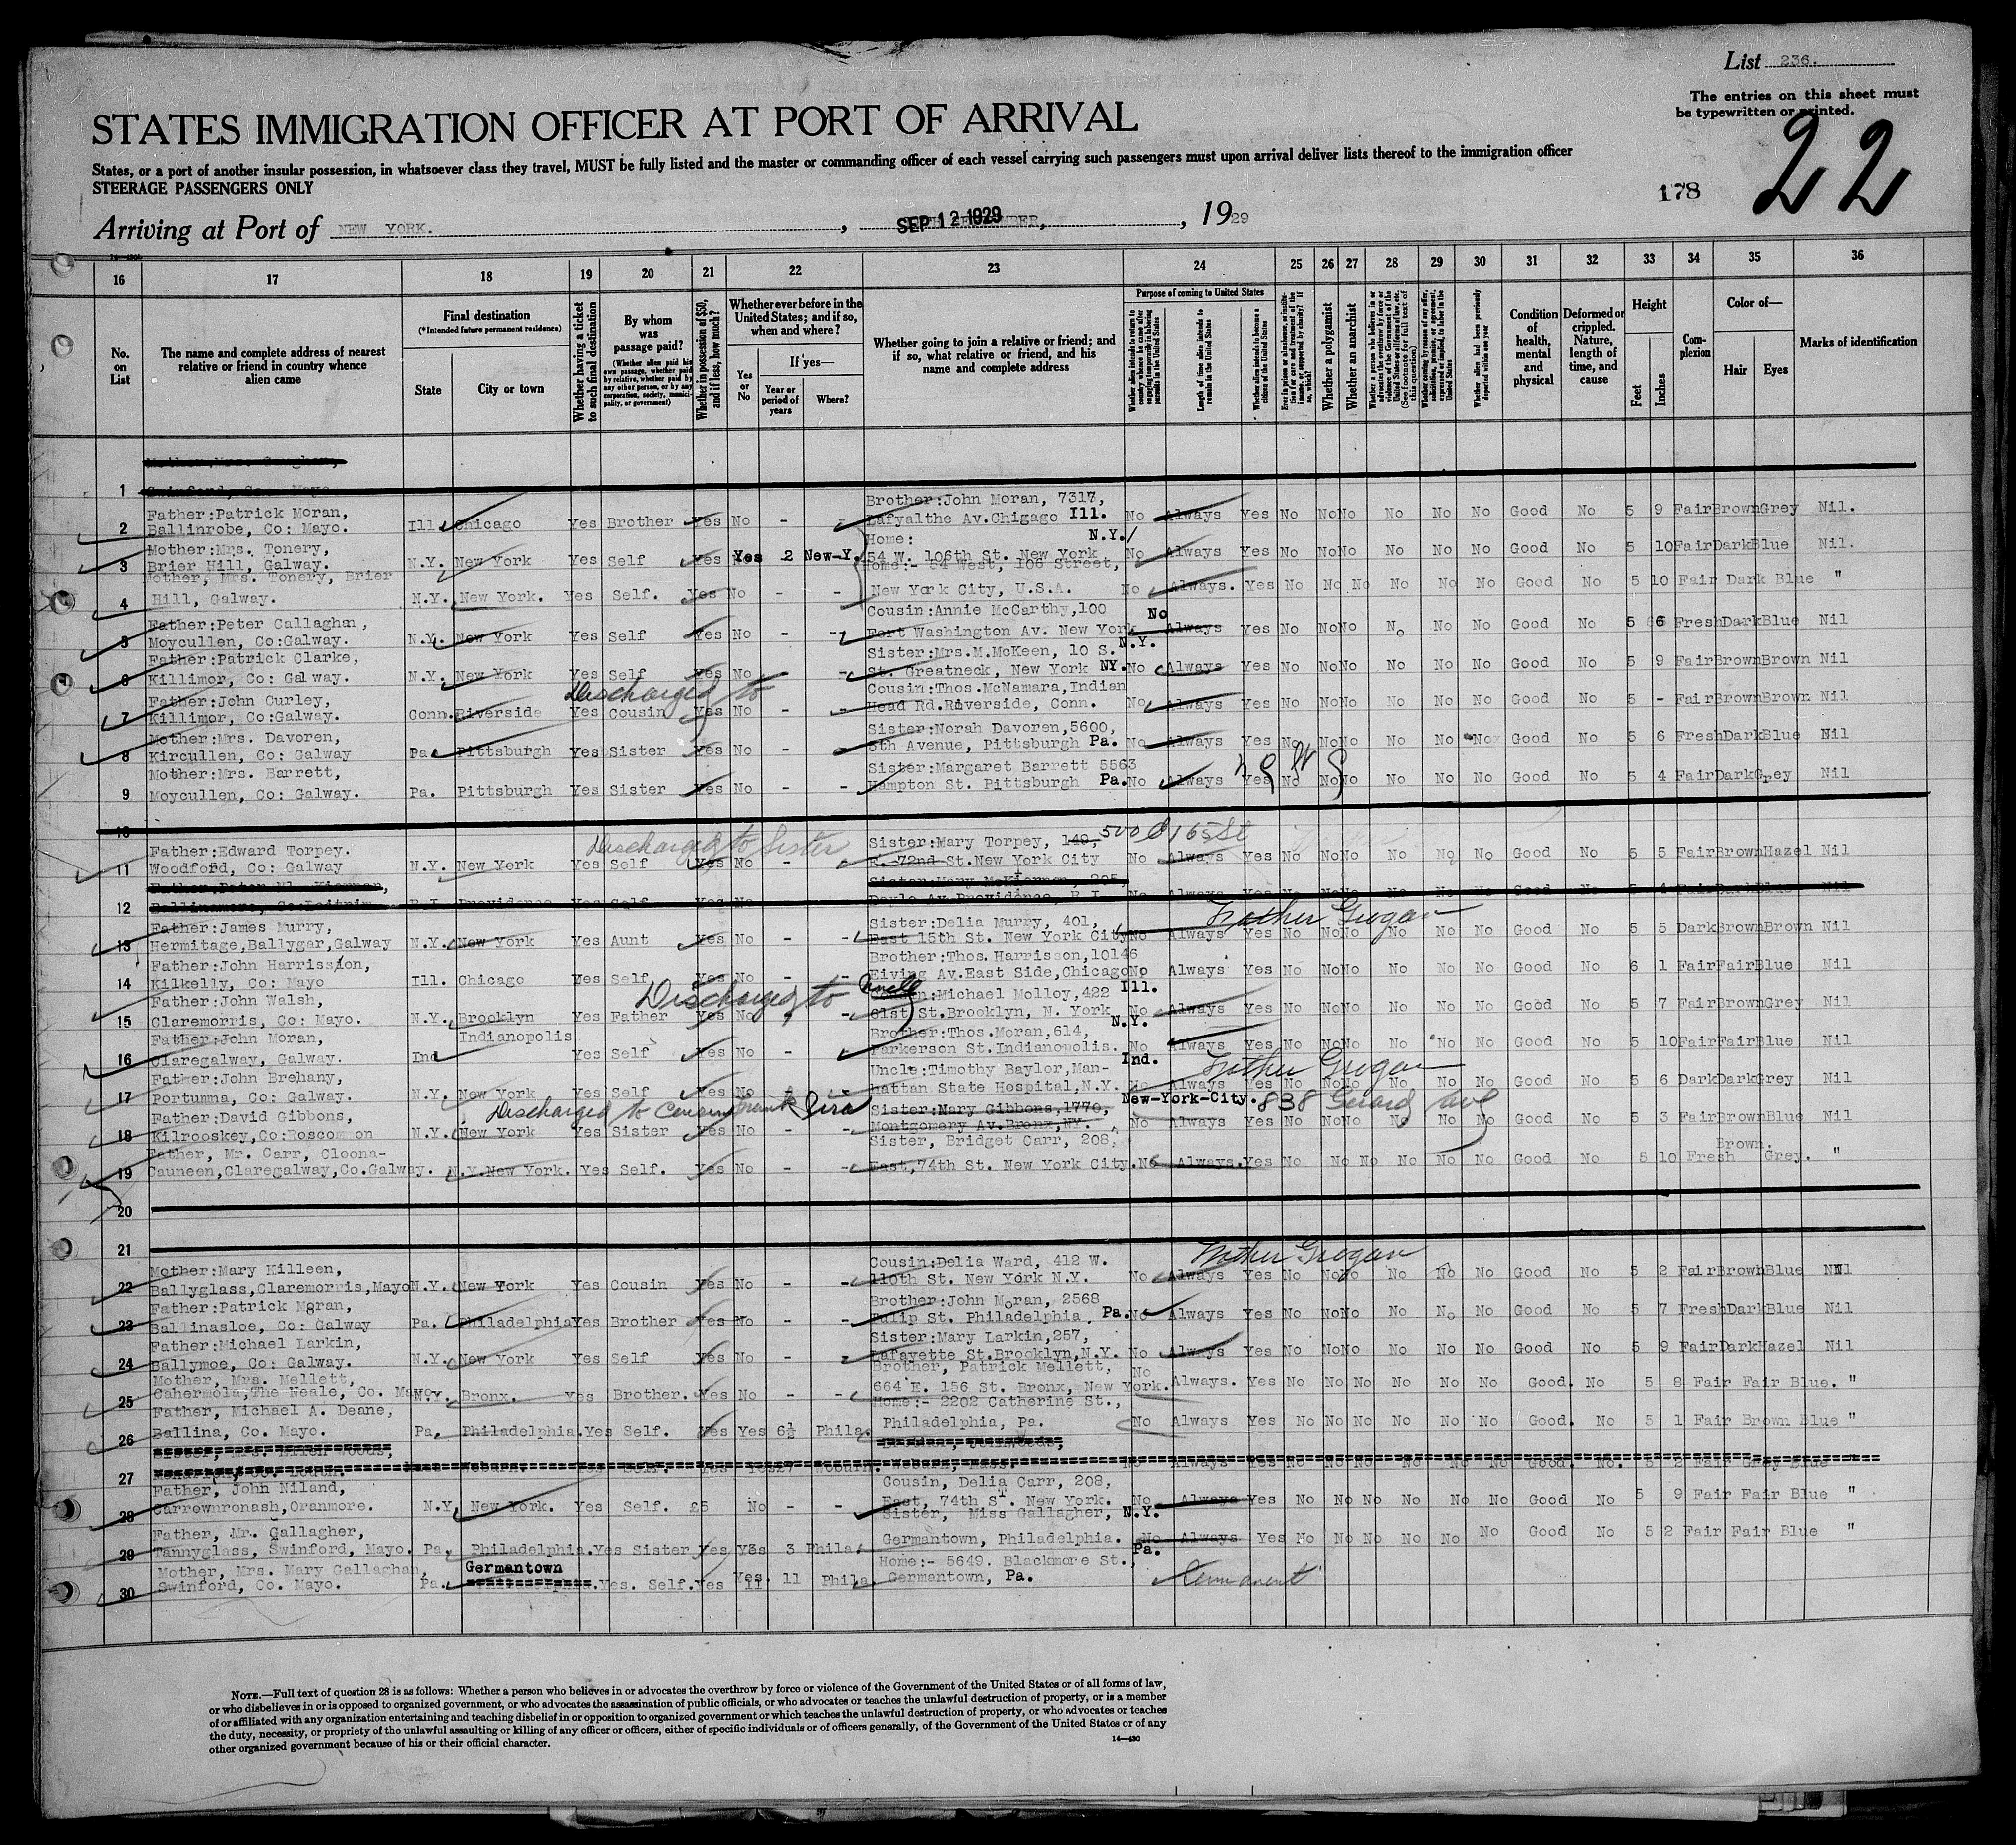 List 236.
The entries on this sheet must
be typewritten or printed.
STATES IMMIGRATION OFFICER AT PORT OF ARRIVAL
States, or a port of another insular possession, in whatsoever class they travel, MUST be fully listed and the master or commanding officer of each vessel carrying such passengers must upon arrival deliver lists thereof to the immigration officer
STEERAGE PASSENGERS ONLY
178
22
Arriving at Port of NEW YORK. , SEP 12 1929 , 1929
16 17 18 19 20 21 22 23 24 25 26 27 28 29 30 31 32 33 34 35 36
No. on List
The name and complete address of nearest relative or friend in country whence alien came
Final destination
(*Intended future permanent residence)
State
City or town
Whether having a ticket to such final destination
By whom was passage paid?
(Whether alien paid his own passage, whether paid by relative, whether paid by any other person, or by any corporation, society, municipality, or government)
Whether in possession of $50, and if less, how much?
Whether ever before in the United States; and if so, when and where?
Yes or No
If yes—
Year or period of years
Where?
Whether going to join a relative or friend; and if so, what relative or friend, and his name and complete address
Purpose of coming to United States
Whether alien intends to return to country whence he came after engaging temporarily in laboring pursuits in the United States
Length of time alien intends to remain in the United States
Whether alien intends to become a citizen of the United States
Ever in prison or almshouse, or institution for care and treatment of the insane, or supported by charity? If so, which?
Whether a polygamist
Whether an anarchist
Whether alien had been previously deported within one year
Condition of health, mental and physical
Deformed or crippled. Nature, length of time, and cause
Height
Feet
Inches
Complexion
Color of—
Hair
Eyes
Marks of identification
1
Brother:John Moran, 7317,
Father:Patrick Moran,
2 Ballinrobe, Co: Mayo. Ill. Chicago Yes Brother Yes No - - Lafyalthe Av.Chigago Ill. No Always Yes No No No No No No Good No 5 9 Fair Brown Grey Nil.
Mother:Mrs. Tonery, Home: N.Y.
3 Brier Hill, Galway. N.Y. New York Yes Self Yes Yes 2 New-Y. 54 W. 106th St. New York No Always Yes No No No No No No Good No 5 10 Fair Dark Blue Nil.
Mother, Mrs. Tonery, Brier Home:- 54 West, 106 Street,
4 Hill, Galway. N.Y. New York. Yes Self. Yes No - - New York City, U.S.A. No Always. Yes No No No No No No Good No 5 10 Fair Dark Blue "
Father:Peter Callaghan, Cousin:Annie McCarthy,100 No
5 Moycullen, Co:Galway. N.Y. New York Yes Self Yes No - - Fort Washington Av. New York N.Y. Always Yes No No No No No No Good No 5 6 Fresh Dark Blue Nil
Father:Patrick Clarke, Sister:Mrs.M.McKeen, 10 S.
6 Killimor, Co: Galway. N.Y. New York Yes Self Yes No - - St. Greatneck, New York NY. No Always Yes No No No No No No Good No 5 9 Fair Brown Brown Nil
Discharged to
Father:John Curley, Cousin:Thos.McNamara,Indian
7 Killimor, Co:Galway. Conn. Riverside Yes Cousin Yes No - - Head Rd.Riverside, Conn. No Always Yes No No No No No No Good No 5 - Fair Brown Brown Nil
Mother:Mrs. Davoren, Sister:Norah Davoren,5600,
8 Kircullen, Co: Galway Pa. Pittsburgh Yes Sister Yes No - - 5th Avenue, Pittsburgh Pa. No Always Yes No No No No No No Good No 5 6 Fresh Dark Blue Nil
Mother:Mrs. Barrett, Sister:Margaret Barrett 5563
9 Moycullen, Co: Galway. Pa. Pittsburgh Yes Sister Yes No - - Hampton St. Pittsburgh Pa. No Always Yes No No No No No No Good No 5 4 Fair Dark Grey Nil
10
Discharged to Sister
Father:Edward Torpey. Sister:Mary Torpey, 149, 500 E 165 St
11 Woodford, Co: Galway N.Y. New York Yes Self Yes No - - E. 72nd St.New York City No Always Yes No No No No No No Good No 5 5 Fair Brown Hazel Nil
Father:Peter McKiernan, Sister:Mary McKiernan, 205,
12 Ballinamore, Co:Leitrim R.I. Providence Yes Self Yes No Doyle Av.Providence, R.I. No Always Yes No No No No No No Good No 5 4 Fair Dark Blue Nil
Father Grogan
Father:James Murry, Sister:Delia Murry, 401,
13 Hermitage,Ballygar,Galway N.Y. New York Yes Aunt Yes No - - East 15th St. New York City No Always Yes No No No No No No Good No 5 5 Dark Brown Brown Nil
Father:John Harrission, Brother:Thos. Harrisson,10146
14 Kilkelly, Co: Mayo Ill. Chicago Yes Self Yes No - - Eiving Av.East Side,Chicago Ill. No Always Yes No No No No No No Good No 6 1 Fair Fair Blue Nil
Discharged to Uncle
Father:John Walsh, Michael Molloy,422
15 Claremorris, Co: Mayo. N.Y. Brooklyn Yes Father Yes No - - 61st St.Brooklyn, N. York N.Y. No Always Yes No No No No No No Good No 5 7 Fair Brown Grey Nil
Father:John Moran, Indianopolis Brother:Thos.Moran,614,
16 Claregalway, Galway. Ind Yes Self Yes No - - Parkerson St.Indianopolis. Ind. No Always Yes No No No No No No Good No 5 10 Fair Fair Blue Nil
Father Grogan
Father:John Brehany, Uncle:Timothy Baylor,Man-
17 Portumna, Co: Galway. N.Y. New York Yes Self Yes No - - hattan State Hospital,N.Y. New-York-City. No Always Yes No No No No No No Good No 5 6 Dark Dark Grey Nil
Discharged to cousin Frank
838 Gerard Ave
Father:David Gibbons, Sister:Mary Gibbons,1770,
18 Kilrooskey,Co:Roscommon N.Y. New York Yes Sister Yes No - - Montgomery Av.Bronx,NY. No Always Yes No No No No No No Good No 5 3 Fair Brown Blue Nil
Father, Mr. Carr, Cloona- Sister, Bridget Carr, 208, Brown.
19 Cauneen,Claregalway,Co.Galway. N.Y. New York. Yes Self. Yes No - - East,74th St. New York City. No Always. Yes No No No No No No Good No 5 10 Fresh Grey. "
20
21
Father Grogan
Mother:Mary Killeen, Cousin:Delia Ward, 412 W.
22 Ballyglass,Claremorris,Mayo N.Y. New York Yes Cousin Yes No - - 110th St. New York N.Y. No Always Yes No No No No No No Good No 5 2 Fair Brown Blue Nil
Father:Patrick Moran, Brother:John Moran, 2568
23 Ballinasloe, Co: Galway Pa. Philadelphia Yes Brother Yes No - - Tulip St. Philadelphia. Pa. No Always Yes No No No No No No Good No 5 7 Fresh Dark Blue Nil
Father:Michael Larkin, Sister:Mary Larkin,257,
24 Ballymoe, Co: Galway. N.Y. New York Yes Self Yes No - - Lafayette St.Brooklyn,N.Y. No Always Yes No No No No No No Good No 5 9 Fair Dark Hazel Nil
Mother, Mrs. Mellett, Brother, Patrick Mellett, No
25 Cahermola,The Neale, Co. Mayo N.Y. Bronx. Yes Brother. Yes No - - 664 E. 156 St. Bronx, New York. Always. Yes No No No No No No Good. No 5 8 Fair Fair Blue. "
Father, Michael A. Deane, Home:- 2202 Catherine St.,
26 Ballina, Co. Mayo. Pa. Philadelphia. Yes Self. Yes Yes 6½ Phila. Philadelphia, Pa. No Always Yes No No No No No No Good. No 5 1 Fair Brown Blue "
27
Father, John Niland, Cousin, Delia Carr, 208,
28 Carrownronash,Oranmore. N.Y. New York. Yes Self. £5 No - - East, 74th St. New York. N.Y. No Always Yes No No No No No No Good No 5 9 Fair Fair Blue "
Father, Mr. Gallagher, Sister, Miss Gallagher,
29 Tannyglass, Swinford, Mayo. Pa. Philadelphia. Yes Sister Yes Yes 3 Phila. Germantown, Philadelphia. Pa. No Always Yes No No No No No No Good No 5 2 Fair Fair Blue "
Mother, Mrs. Mary Gallaghan, Germantown Home:- 5649. Blackmore St.,
30 Swinford, Co. Mayo. Pa. Yes. Self. Yes Yes. 11 Phila. Germantown, Pa. Permanent
NOTE.—Full text of question 28 is as follows: Whether a person who believes in or advocates the overthrow by force or violence of the Government of the United States or of all forms of law,
or who disbelieves in or is opposed to organized government, or who advocates the assassination of public officials, or who advocates or teaches the unlawful destruction of property, or is a member
of or affiliated with any organization entertaining and teaching disbelief in or opposition to organized government or which teaches the unlawful destruction of property, or who advocates or teaches
the duty, necessity, or propriety of the unlawful assaulting or killing of any officer or officers, either of specific individuals or of officers generally, of the Government of the United States or of any
other organized government because of his or their official character.
14—430